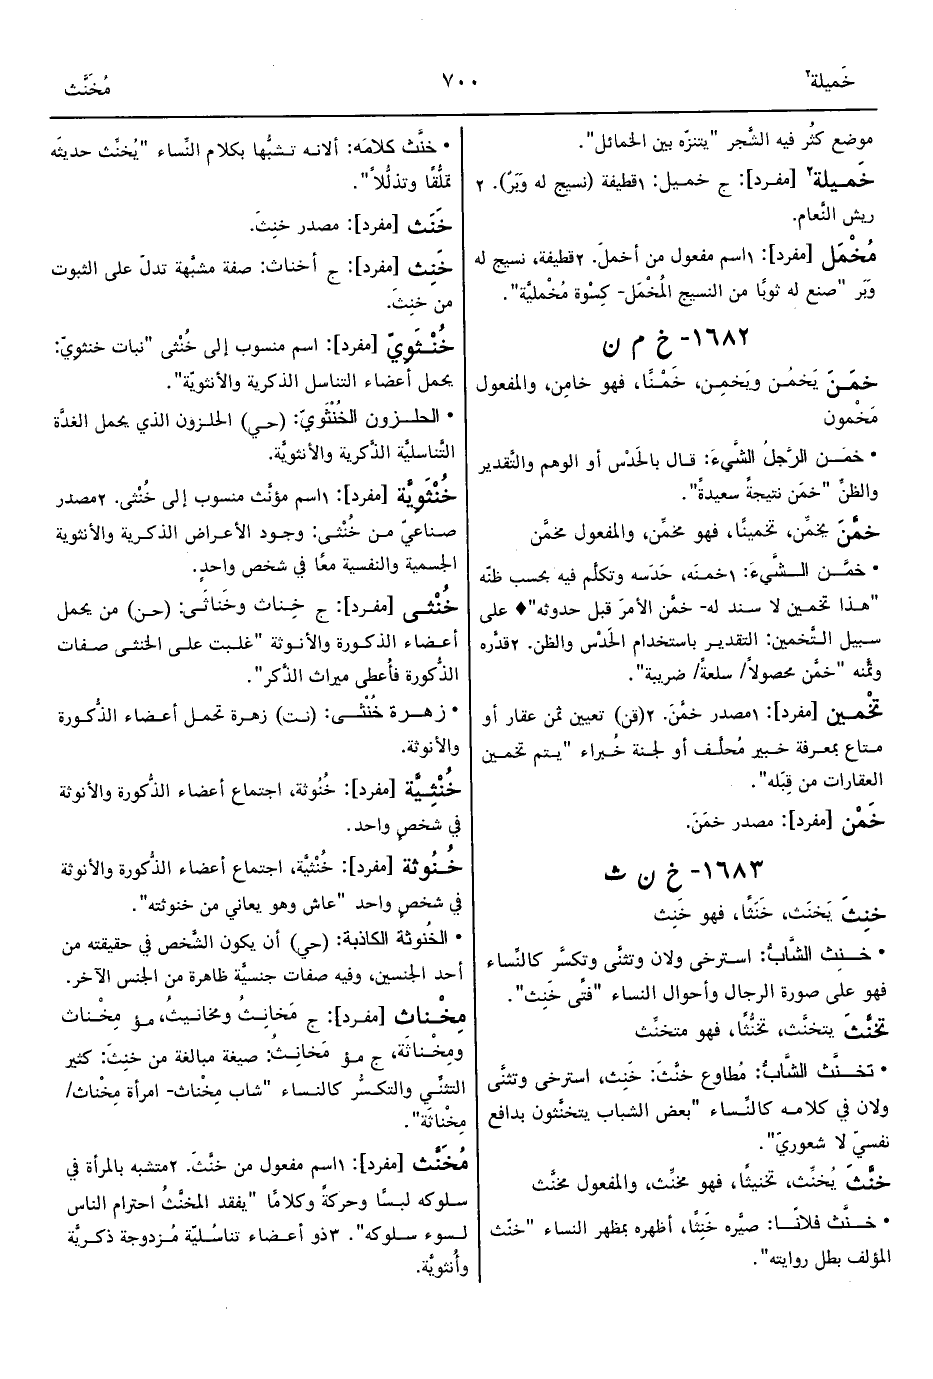 خَميلة٢
٧٠٠
مُخَنَّث
موضع كثُر فيه الشَّجر "يتنزّه بين الخمائل".
خَميلة٢ [مفرد]: ج خميل: ١قطيفة (نسيج له وَبَرٌ). ٢
ريش النَّعام.
مُخْمَل [مفرد]: ١اسم مفعول من أخملَ. ٢قطيفة، نسيج له
وَبَر "صنع له ثوبًا من النسيج المُخْمَل- كِسْوة مُخْمليَّة".
١٦٨٢- خ م ن
خمَنَ يَخمُن ويَخمِن، خَمْنًا، فهو خامِن، والمفعول
مَخْمون
• خمَن الرَّجلُ الشَّيءَ: قال بالحَدْس أو الوهم والتَّقدير
والظنِّ "خمَن نتيجةً سعيدةً".
خمَّنَ يخمِّن، تخمينًا، فهو مخمِّن، والمفعول مخمَّن
• خمَّن الشَّيءَ: ١خمنَه، حَدَسه وتكلَّم فيه بحسب ظنّه
"هذا تخمين لا سند له- خمَّن الأمرَ قبل حدوثه"♦ على
سبيل التَّخمين: التقدير باستخدام الحَدْس والظن. ٢قدَّره
وثَّمنه "خمَّن محصولاً/ سلعةً/ ضريبة".
تخْمين [مفرد]: ١مصدر خمَّنَ. ٢(قن) تعيين ثمن عقار أو
متاع بمعرفة خبير مُحلَّف أو لجنة خُبراء "يتم تخمين
العقارات من قِبَله".
خَمْن [مفرد]: مصدر خمَنَ.
١٦٨٣- خ ن ث
خنِثَ يَخنَث، خَنَثًا، فهو خَنِث
• خنِث الشَّابُّ: استرخى ولان وتثنَّى وتكسَّر كالنِّساء
فهو على صورة الرجال وأحوال النساء "فتًى خَنِث".
تخنَّثَ يتخنَّث، تخنُّثًا، فهو متخنِّث
• تخنَّث الشَّابُّ: مُطاوع خنَّثَ: خَنِث، استرخى وتثنَّى
ولان في كلامه كالنِّساء "بعض الشباب يتخنَّثون بدافع
نفسيّ لا شعوريّ".
خنَّثَ يُخنِّث، تخنيثًا، فهو مخنِّث، والمفعول مخنَّث
• خنَّث فلانًا: صيَّره خَنِثًا، أظهره بمظهر النساء "خنّث
المؤلف بطل روايته".
• خنَّث كلامَه: ألانه تشبُّها بكلام النِّساء "يُخنّث حديثَه
تملُّقًا وتذلُّلاً".
خَنَث [مفرد]: مصدر خنِثَ.
خَنِث [مفرد]: ج أخناث: صفة مشبَّهة تدلّ على الثبوت
من خنِثَ.
خُنْثَويّ [مفرد]: اسم منسوب إلى خُنْثى "نبات خنثويّ:
يحمل أعضاء التناسل الذكرية والأنثويّة".
• الحلزون الخُنْثَويّ: (حي) الحلزون الذي يحمل الغدَّة
التَّناسليَّة الذَّكرية والأنثويَّة.
خُنْثَويَّة [مفرد]: ١اسم مؤنَّث منسوب إلى خُنْثى. ٢مصدر
صناعيّ من خُنْثى: وجود الأعراض الذكرية والأنثوية
الجسمية والنفسية معًا في شخص واحدٍ.
خُنْثى [مفرد]: ج خِناث وخَناثَى: (حن) من يحمل
أعضاء الذكورة والأنوثة "غلبت على الخنثى صفات
الذُّكورة فأُعطي ميراث الذَّكر".
• زهرة خُنْثى: (نت) زهرة تحمل أعضاء الذُّكورة
والأنوثة.
خُنْثِيَّة [مفرد]: خُنُوثة، اجتماع أعضاء الذُّكورة والأنوثة
في شخصٍ واحد.
خُنُوثة [مفرد]: خُنْثيَّة، اجتماع أعضاء الذُّكورة والأنوثة
في شخصٍ واحد "عاش وهو يعاني من خنوثته".
• الخنُوثة الكاذبة: (حي) أن يكون الشَّخص في حقيقته من
أحد الجنسين، وفيه صفات جنسيَّة ظاهرة من الجنس الآخر.
مِخْناث [مفرد]: ج مَخانِثُ ومخانيثُ، مؤ مِخْناث
ومِخْناثَة، ج مؤ مَخانِثُ: صيغة مبالغة من خنِثَ: كثير
التثنِّي والتكسُّر كالنساء "شاب مِخْناث- امرأة مِخْناث/
مِخْناثَة".
مُخَنَّث [مفرد]: ١اسم مفعول من خنَّثَ. ٢متشبه بالمرأة في
سلوكه لبسًا وحركةً وكلامًا "يفقد المخنَّثُ احترام الناس
لسوء سلوكه". ٣ذو أعضاء تناسُليَّة مُزدوجة ذكريَّة
وأُنثويَّة.